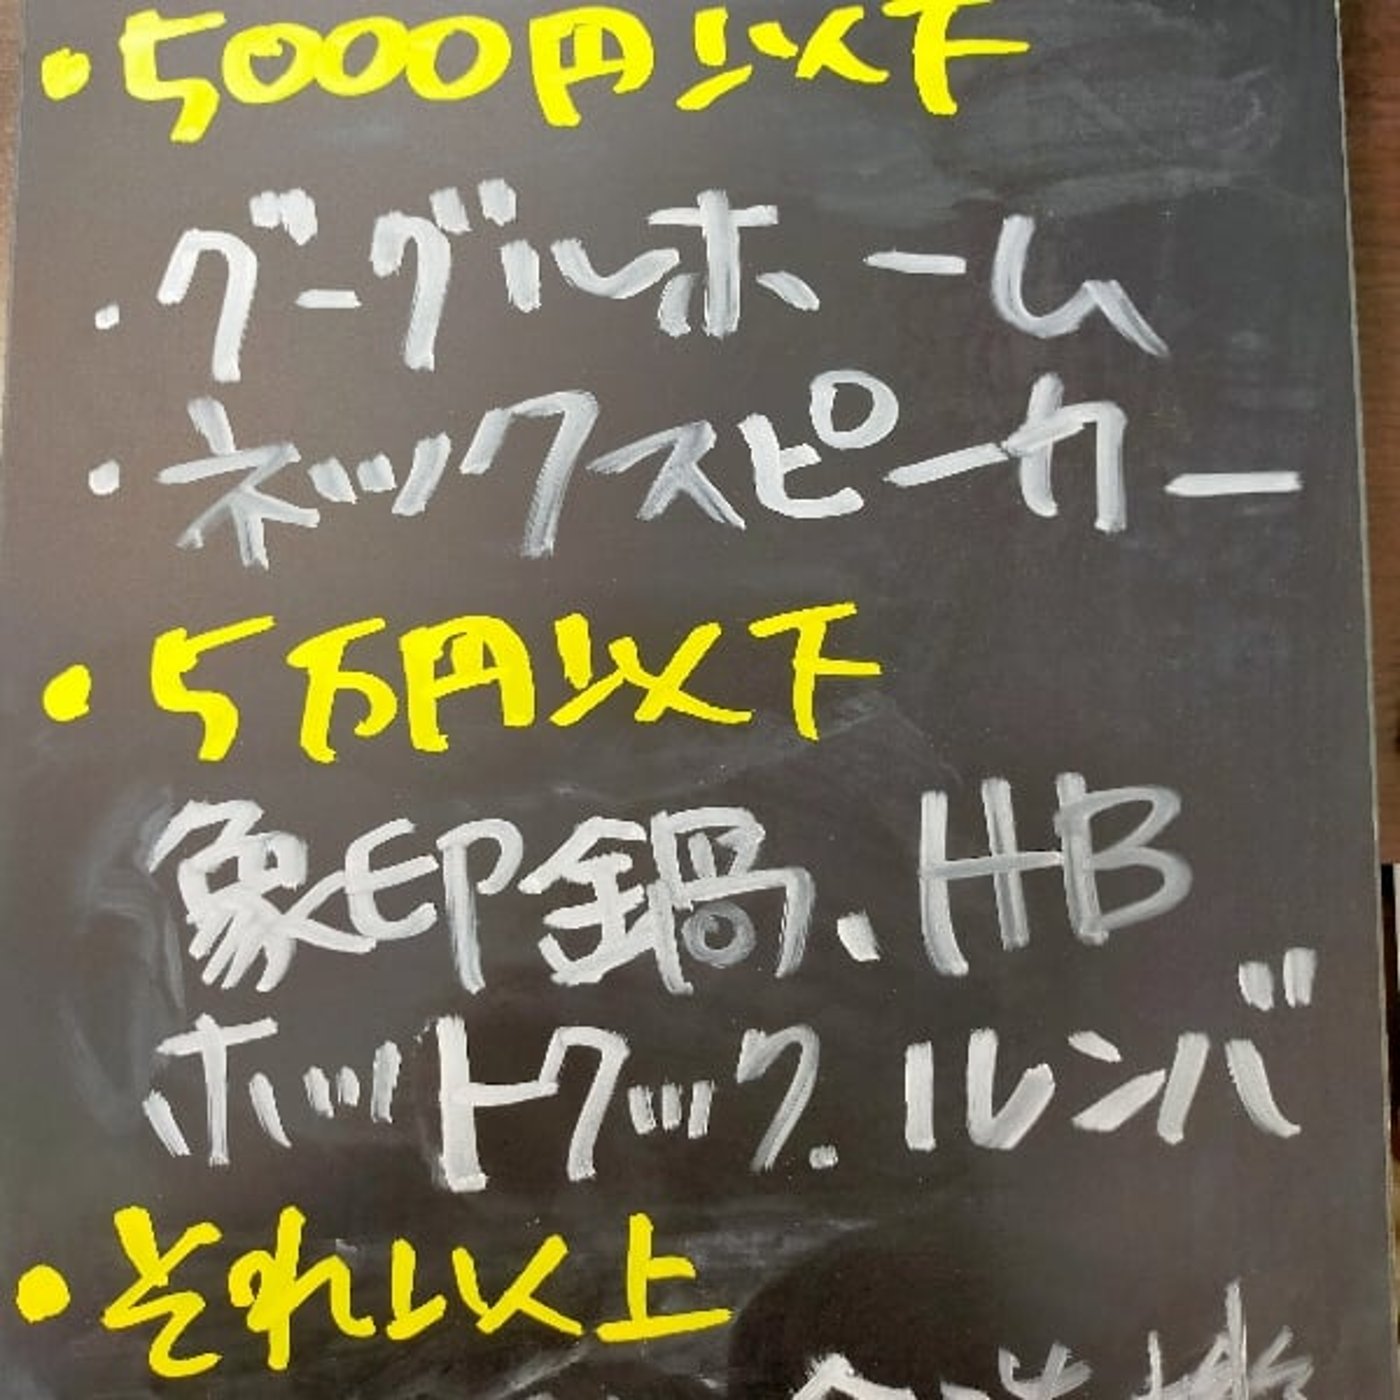 ・5000円以下
・グーグルホーム
・ネックスピーカー
・5万円以下
象印鍋、HB
ホットクック.ルンバ
・それ以上